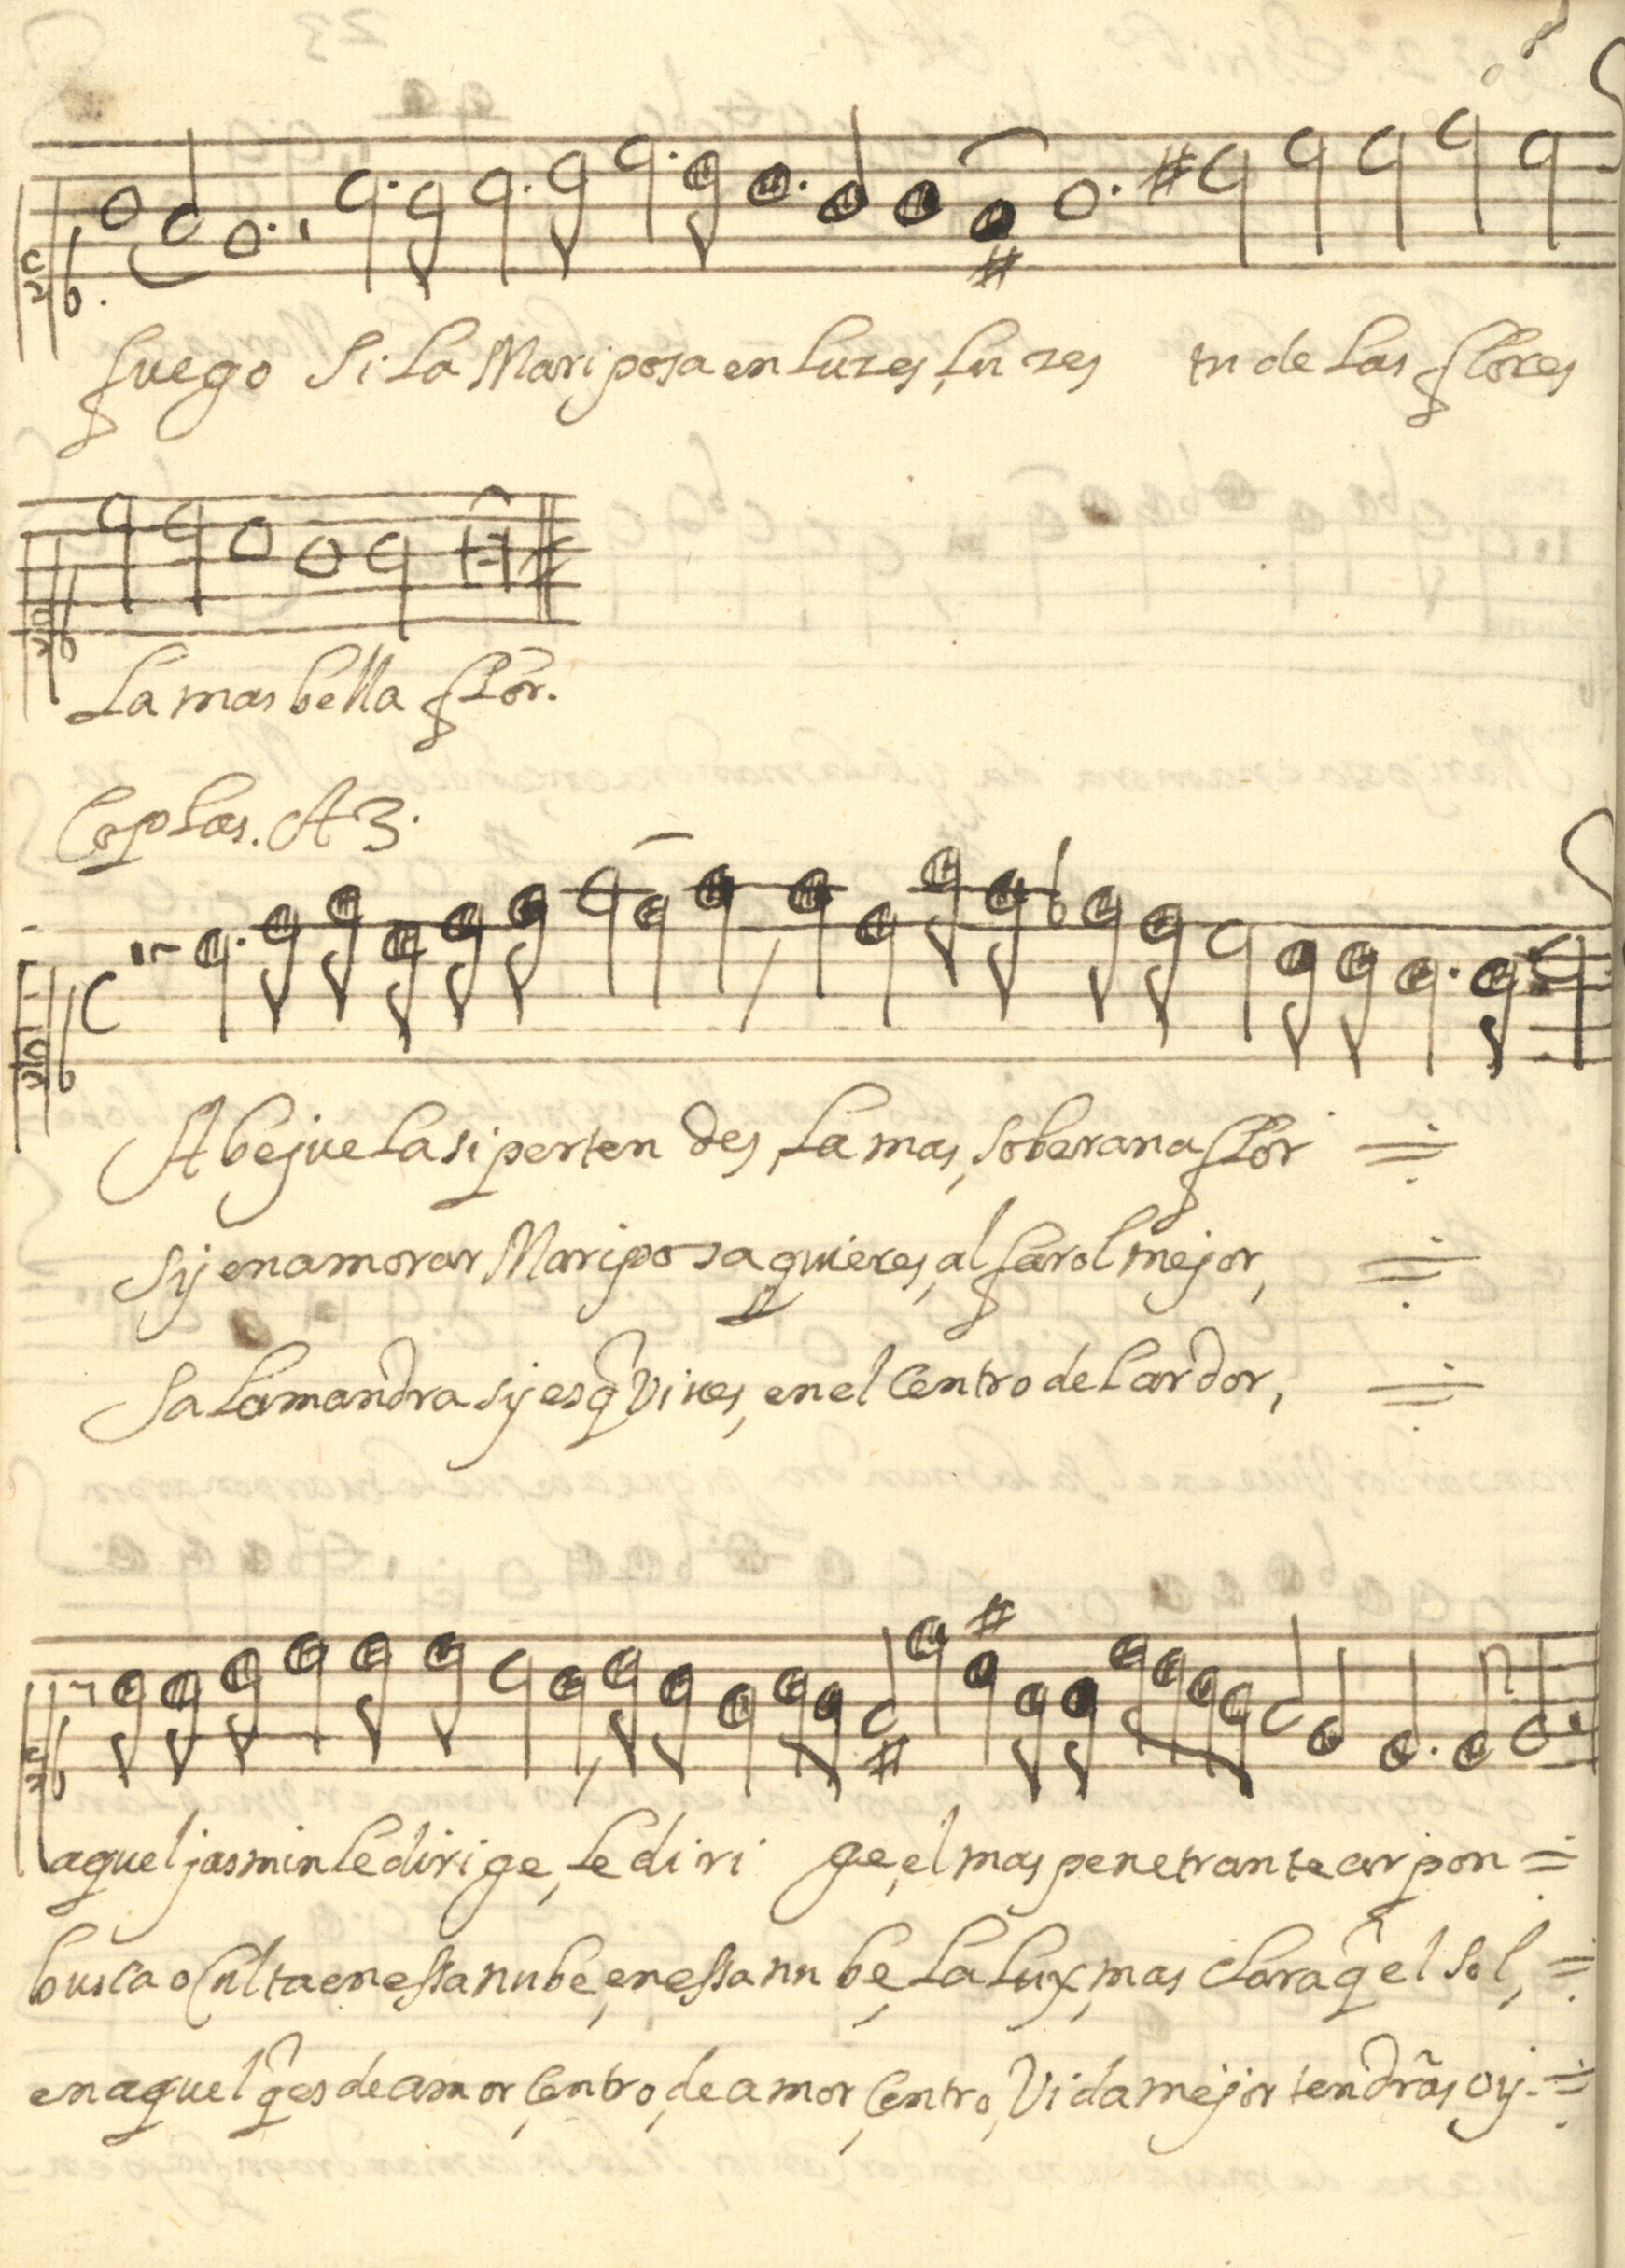 fuego Si la Mariposa en luzes, lu zes tu de las flores
La mas bella flor.
Coplas. A 3.
Abejuela si perten des, la mas, soberana flor
sy enamorar Mariposa quieres, al farol mejor,
Salamandra sy es q̃ vives, en el centro del ardor,
aquel jasmin le dirige, le diri ge, el mas penetrante arpon
busca oculta en essa nube, en essa nu be, la lux, mas clara q̃ el sol,
en aquel q̃ es de amor centro, de amor centro, vida mejor tendras oy.